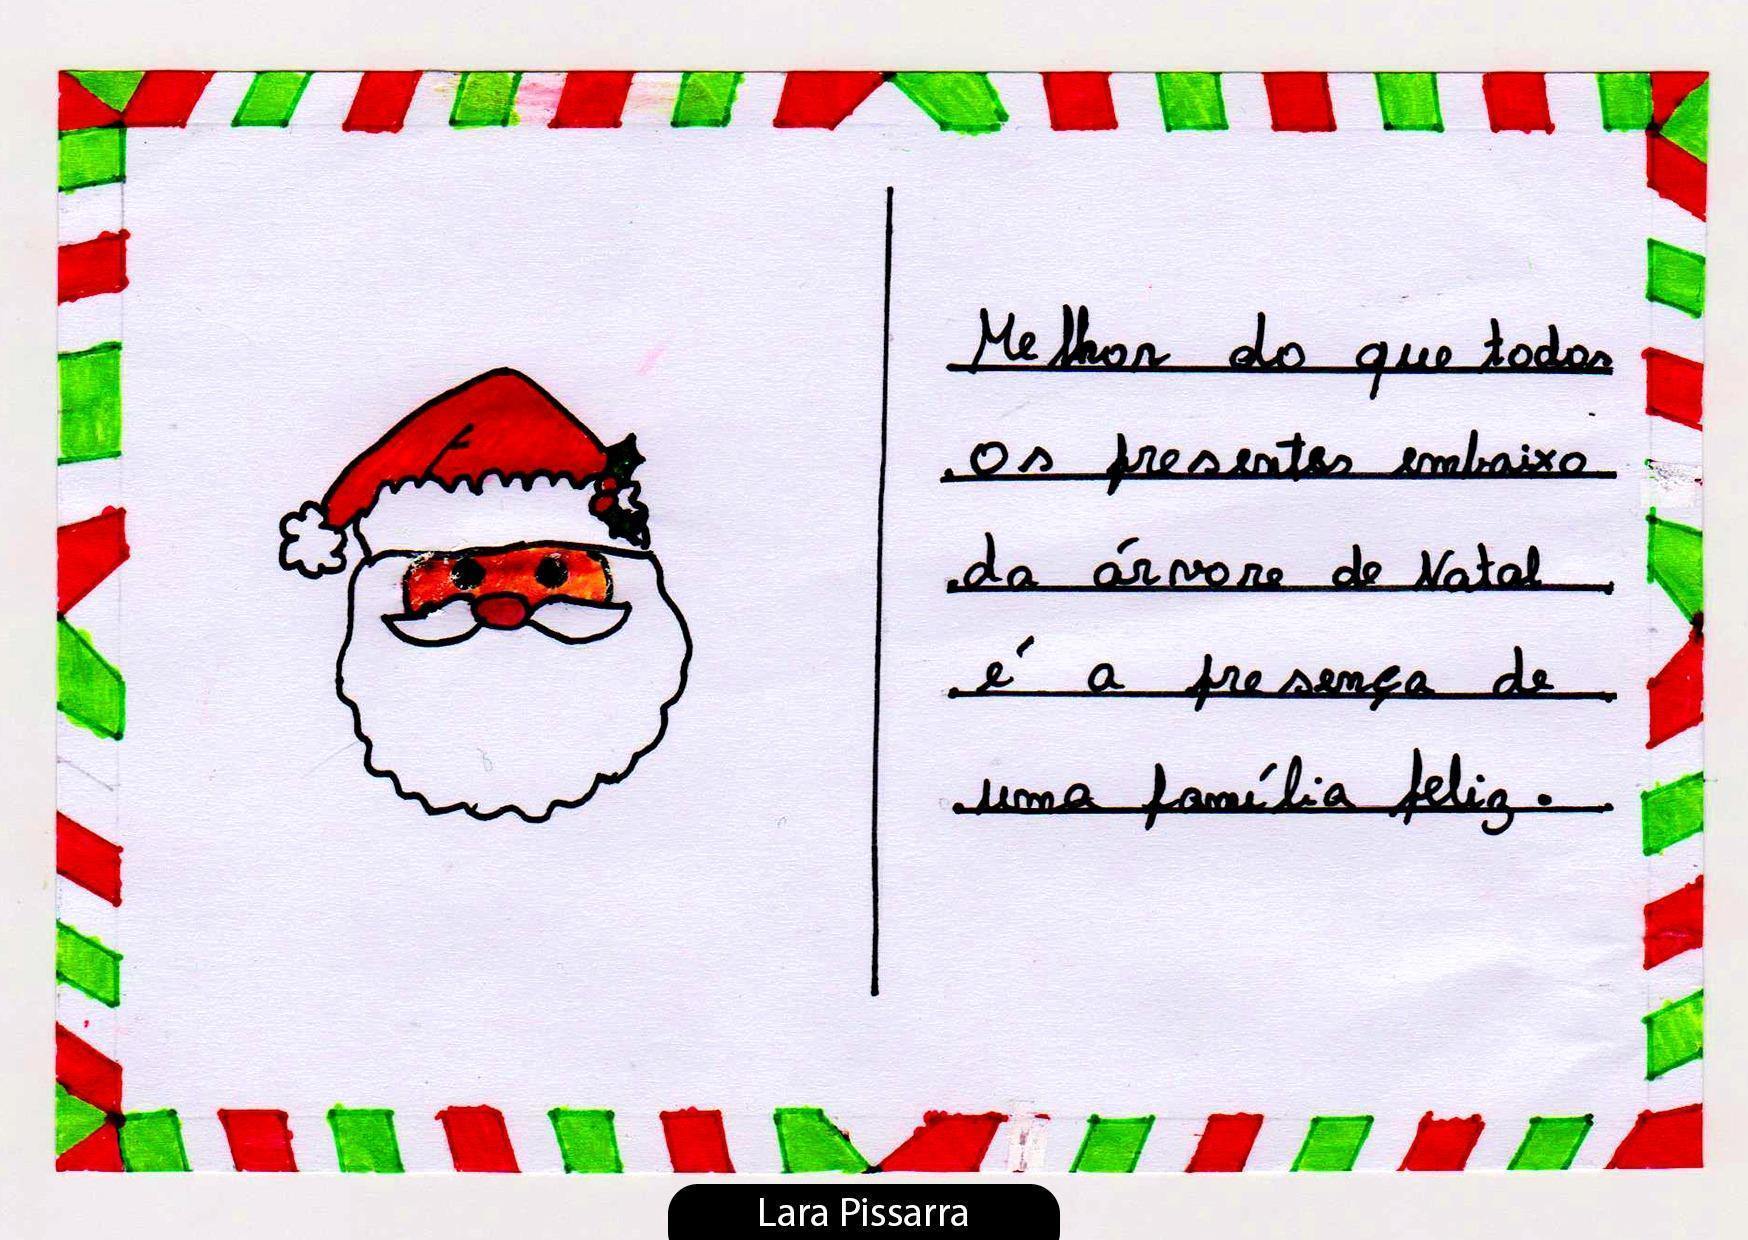 Melhor do que todos
os presentes embaixo
da árvore de Natal
é a presença de
uma família feliz.
Lara Pissarra